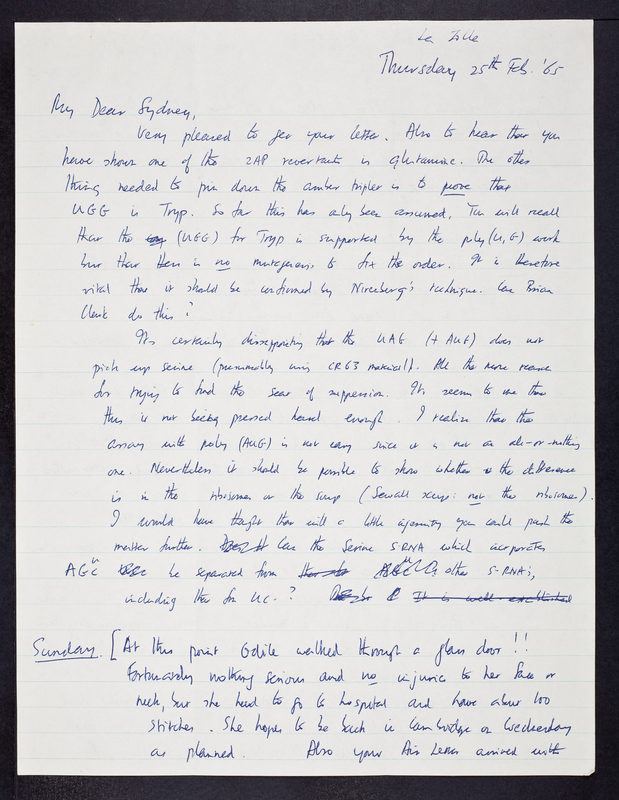 La Zille
Thursday 25th Feb. '65
My Dear Sydney,
Very pleased to get your letter. Also to hear that you
have shown one of the 2AP revertants is glutamine. The other
thing needed to pin down the amber triplet is to prove that
UGG is Tryp. So far this has only been assumed. You will recall
that the (UGG) for Tryp is supported by the poly(U,G) work
but that there is no mutagenesis to fix the order. It is therefore
vital that it should be confirmed by Nirenberg's technique. Can Brian
Clark do this?
It's certainly disappointing that the UAG (+ AUG) does not
pick up serine (presumably using CR63 material). All the more reason
for trying to find the seat of suppression. It seems to me that
this is not being pressed hard enough. I realize that the
assay with poly (AUG) is not easy since it is not an all-or-nothing
one. Nevertheless it should be possible to show whether the difference
is in the ribosomes or the soup (Sewall says: not the ribosomes).
I would have thought that with a little ingenuity you could push the
matter further. Can the Serine S-RNA which incorporates
AGUC be separated from other S-RNAs,
including that for UC.? It is well established
Sunday. [At this point Odile walked through a glass door!!
Fortunately nothing serious and no injuries to her face or
neck, but she had to go to hospital and have about 100
stitches. She hopes to be back in Cambridge on Wednesday
as planned. Also your Air Letter arrived with